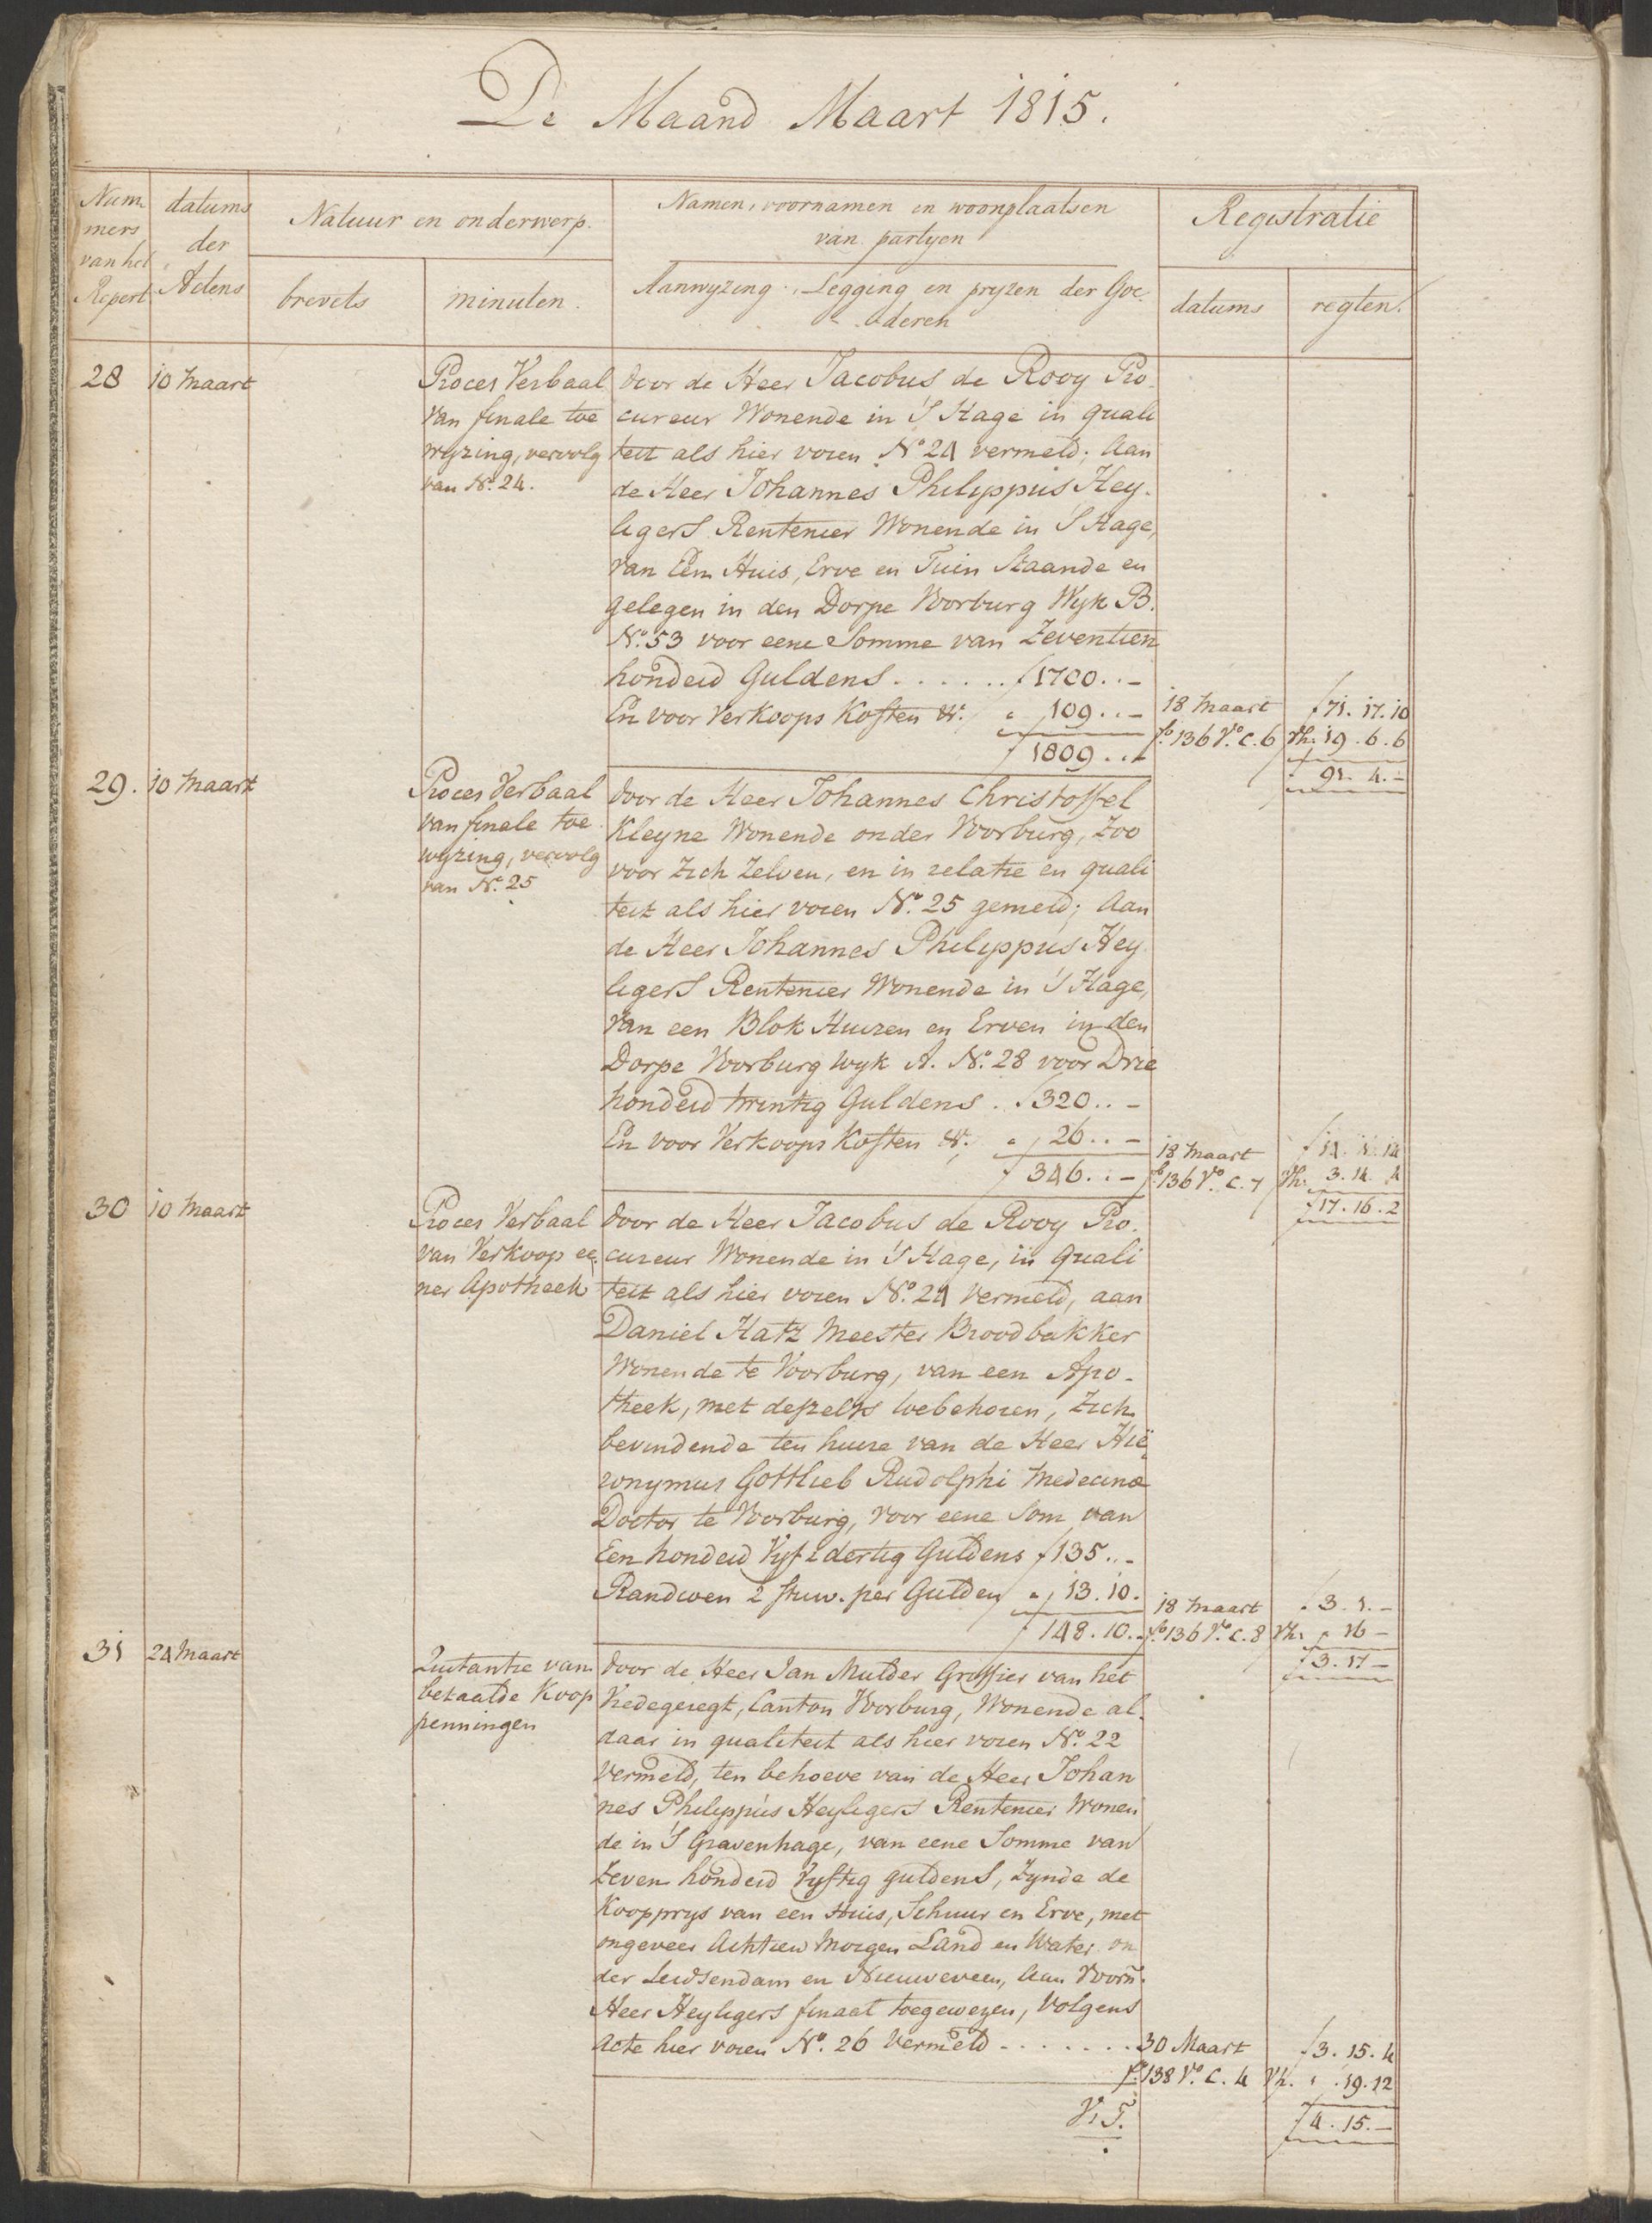 De Maand Maart 1815.
Num
mers
van het
Repert
datums
der
Actens
Natuur en onderwerp.
brevets
minuten.
Namen, voornamen en woonplaatsen
van partyen
Aanwyzing, Legging en pryzen der Goe-
deren
Registratie
datums
regten.
28 10 Maart
Proces Verbaal
van finale toe
wyzing, vervolg
van No. 24.
door de Heer Jacobus de Rooy Pro-
cureur Wonende in 'S Hage in quali
teit als hier voren No. 24 vermeld; Aan
de Heer Johannes Philippus Hey-
ligers Rentenier Wonende in 'S Hage,
van Een Huis, Erve en Tuin Staande en
gelegen in den Dorpe Voorburg Wyk B.
No. 53 voor eene Somme van Zeventien
honderd Guldens . . . . . . ƒ 1700. . -
En voor Verkoops Kosten &c. " 109. . -
ƒ 1809. . -
18 Maart ƒ 71. 17. 10
fo. 136 Vo. C. 6 Vh. 19. 6. 6
" 91. 4. -
29. 10 Maart
Proces Verbaal
van finale toe
wyzing, vervolg
van No. 25
door de Heer Johannes Christoffel
Kleyne Wonende onder Voorburg, Zoo
voor Zich Zelven, en in relatie en quali
teit als hier voren No. 25 gemeld; Aan
de Heer Johannes Philippus Hey
ligers Rentenier Wonende in 'S Hage,
van een Blok Huizen en Erven in den
Dorpe Voorburg Wyk A. No. 28 voor Drie
honderd twintig Guldens . ƒ 320. . -
En voor Verkoops Kosten &c. " 26. . -
ƒ 346. . -
18 Maart ƒ 14. 1. 14
fo. 136 Vo. C. 7 Vh. 3. 14. 4
ƒ 17. 16. 2
30 10 Maart
Proces Verbaal
van Verkoop ee-
ner Apotheek
door de Heer Jacobus de Rooy Pro-
cureur Wonende in 'S Hage, in quali
teit als hier voren No. 24 vermeld, aan
Daniel Hatz Meester Broodbakker
Wonende te Voorburg, van een Apo-
theek, met deszelfs toebehoren, Zich
bevindende ten huize van de Heer Hië
ronymus Gottlieb Rudolphi Medecinæ
Doctor te Voorburg, voor eene Som van
Een honderd Vyf & dertig Guldens ƒ 135. . -
Randcoen 2 stuiv. per Gulden " 13. 10.
ƒ 148. 10. -
18 Maart " 3. 1. -
fo. 136 Vo. C. 8 Vh. " 16 -
ƒ 3. 17 -
31 24 Maart
Quitantie van
betaalde Koop
penningen
door de Heer Jan Mulder Griffier van het
Vredegeregt, Canton Voorburg, Wonende al-
daar in qualiteit als hier voren No. 22
Vermeld, ten behoeve van de Heer Johan
nes Philippus Heyligers Rentenier Wonen
de in 'S Gravenhage, van eene Somme van
Zeven honderd Vyftig guldens, Zynde de
Koopprys van een Huis, Schuur en Erve, met
ongeveer Achtien Morgen Land en Water on
der Leidsendam en Nieuweveen, Aan Voorn.
Heer Heyligers finaal toegewezen, Volgens
Acte hier voren No. 26 Vermeld . . . . . . .
30 Maart ƒ 3. 15. 4
fo. 138 Vo. C. 4 Vh. " . 19. 12
ƒ 4. 15. -
V. T.